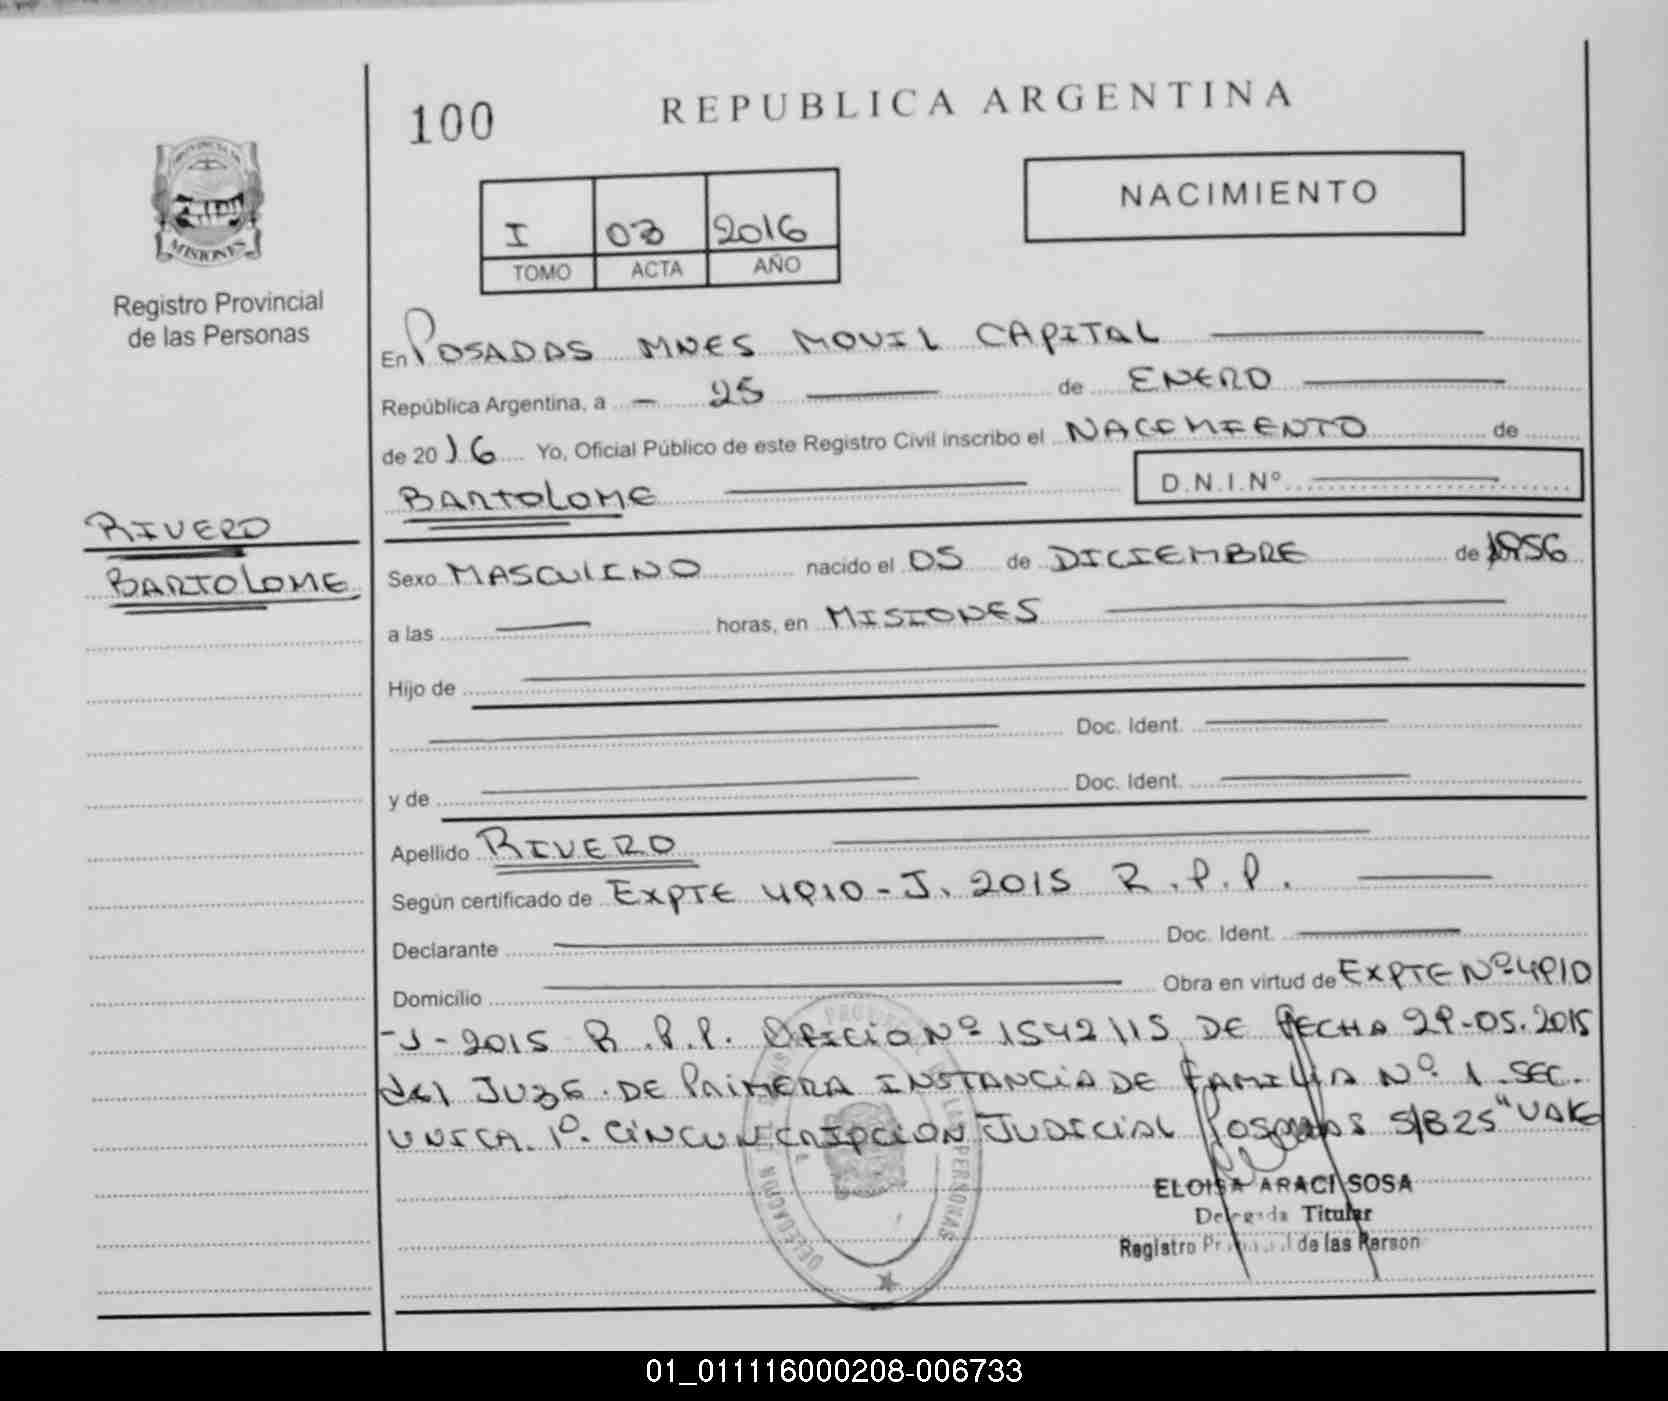 100
REPUBLICA ARGENTINA
NACIMIENTO
I 03 2016
TOMO ACTA AÑO
MISIONES
Registro Provincial
de las Personas
En POSADAS MNES MOVIL CAPITAL
República Argentina, a - 25 de ENERO
de 2016 Yo, Oficial Público de este Registro Civil inscribo el NACIMIENTO de
BARTOLOME D.N.I.Nº
RIVERO
BARTOLOME
Sexo MASCULINO nacido el 05 de DICIEMBRE de 1956
a las horas, en MISIONES
Hijo de
Doc. Ident.
y de Doc. Ident.
Apellido RIVERO
Según certificado de EXPTE 4910-J. 2015 R.P.P.
Declarante Doc. Ident.
Domicilio Obra en virtud de EXPTE Nº 4910
-J-2015 R.P.P. OFICIO Nº 1542/15 DE FECHA 29-05.2015
del JUZG. DE PRIMERA INSTANCIA DE FAMILIA Nº 1. SEC.
UNICA. 1º. CIRCUNSCRIPCION JUDICIAL POSADAS S/B25
ELOISA ARACI SOSA
Delegada Titular
Registro Provincial de las Person
DELEGACION PERSONAS
01_011116000208-006733